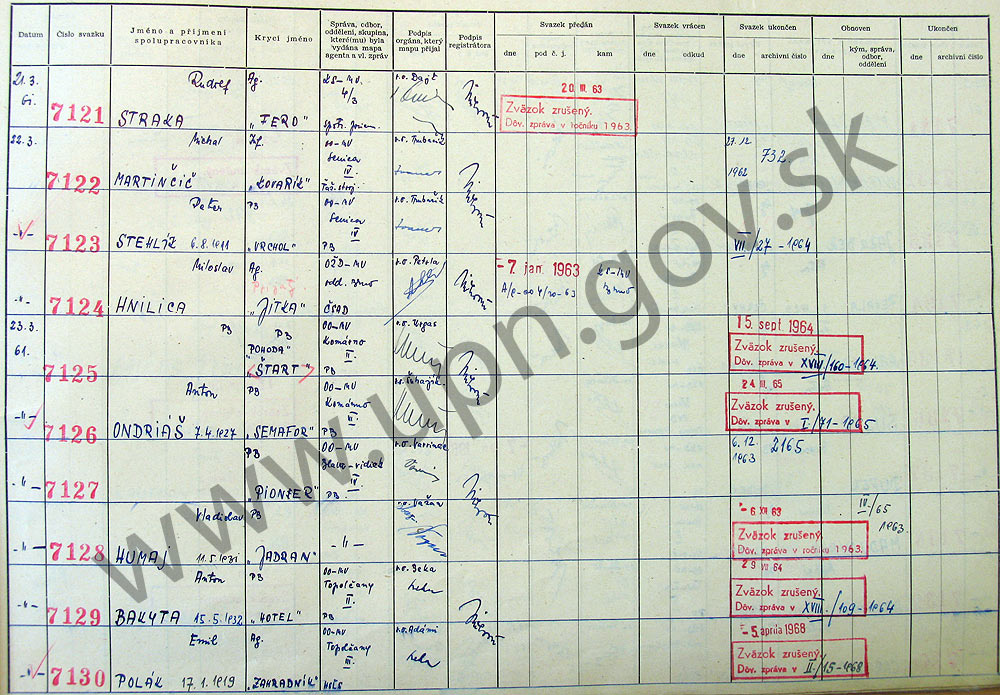 Datum
Číslo svazku
Jméno a příjmení spolupracovníka
Krycí jméno
Správa, odbor, oddělení, skupina, které(mu) byla vydána mapa agenta a vl. zpráv
Podpis orgána, který mapu přijal
Podpis registrátora
Svazek předán
dne
pod č. j.
kam
Svazek vrácen
dne
odkud
Svazek ukončen
dne
archivní číslo
Obnoven
dne
kým, správa, odbor, oddělení
Ukončen
dne
archivní číslo
21.3.
7121
Rudolf
STRAKA
Ag.
"FERO"
KS-MV
4/3
20 III. 63
Zväzok zrušený.
Dôv. zpráva v ročníku 1963.
22.3.
7122
Michal
MARTINČIČ
"KOVAŘÍK"
OO-MV
Senica
IV.
27.12
1962
732.
-"-
7123
Peter
STEHLÍK 6.8.1911
PB
"VRCHOL"
OO-MV
Senica
IV
PB
VII/27-1964
-"-
7124
Miloslav
HNILICA
Ag.
"JITKA"
OŽD-MV
odd. Brno
ČSAD
-7. jan. 1963
KS-MV
Brno
23.3.
61.
7125
PB
PB
"POHODA"
"ŠTART"
OO-MV
Komárno
II.
PB
15. sept. 1964
Zväzok zrušený.
Dôv. zpráva v XVIII/160-1964.
-"-
7126
Anton
ONDRIÁŠ 7.4.1927
PB
"SEMAFOR"
OO-MV
Komárno
II.
PB
24 III. 65
Zväzok zrušený.
Dôv. zpráva v I./71-1965
-"-
7127
PB
"PIONIER"
OO-MV
IV.
PB
6.12.
1963
2165
-"-
7128
Vladislav
HUMAJ 11.5.1931
PB
"JADRAN"
-"-
-6 XII 63
Zväzok zrušený.
Dôv. zpráva v ročníku 1963.
III./65
1963.
-"-
7129
Anton
BAKYTA 15.5.1932
PB
"HOTEL"
OO-MV
Topolčany
II.
PB
29 VII 64
Zväzok zrušený.
Dôv. zpráva v XVIII./109-1964
-"-
7130
Emil
POLÁK 17.1.1919
Ag.
"ZAHRADNÍK"
OO-MV
Topolčany
III.
-5. apríla 1968
Zväzok zrušený.
Dôv. zpráva v II./15-1968
www.upn.gov.sk